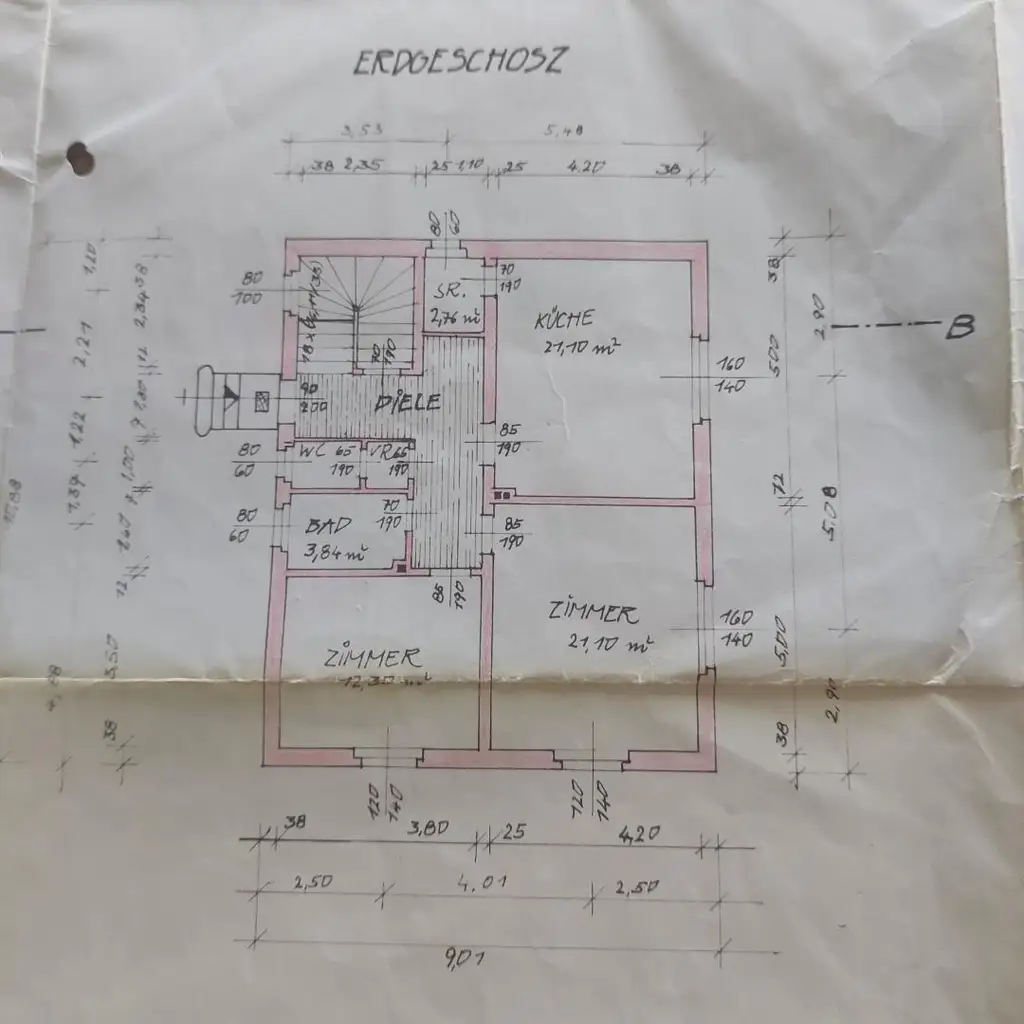 ERDGESCHOSZ
3,53 5,48
38 2,35 25 1,10 25 4.20 38
80
60
80
100
70
190
SR.
2,76 m²
KÜCHE
21,10 m²
70
190
160
140
B
90
200
DIELE
WC 65
190
VR 65
190
85
190
80
60
80
60
70
190
BAD
3,84 m²
85
190
85
190
ZIMMER
21,10 m²
160
140
ZIMMER
12,30 m²
120
140
120
140
1,20
2,21
1,22
3,50
38
38
500
72
5,00
38
2,90
5.08
2,90
38 3,80 25 4,20
2,50 4,01 2,50
9,01